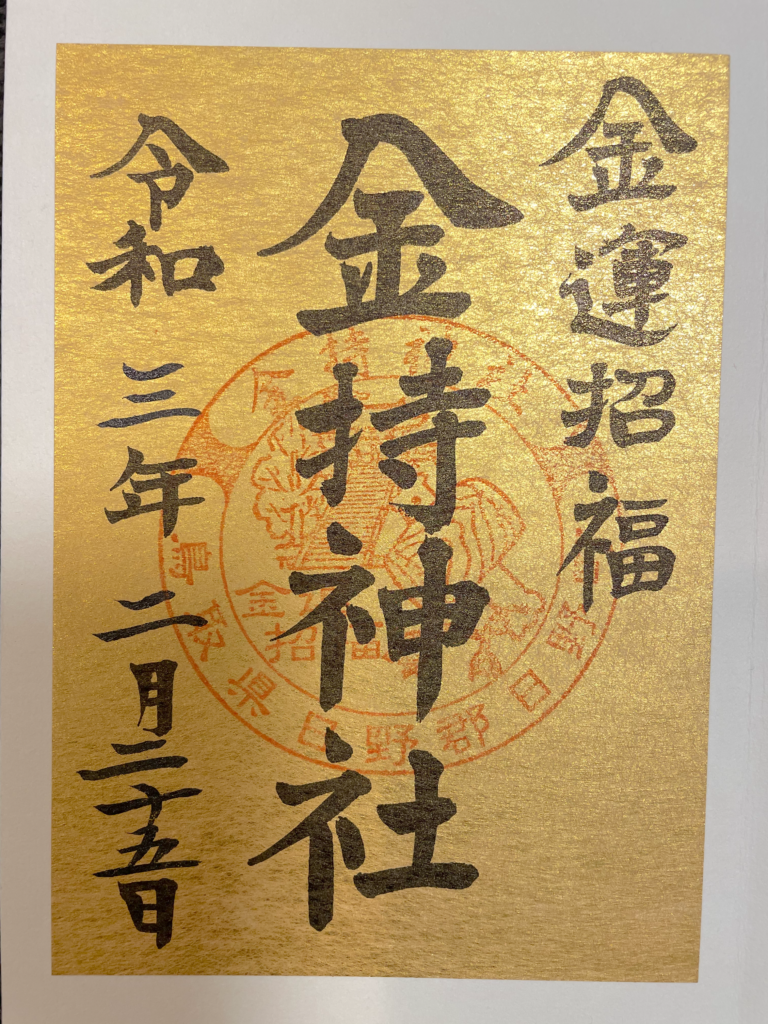 金運招福
金持神社
令和三年二月二十五日
金持神社
鳥取県日野郡日野
金
招福